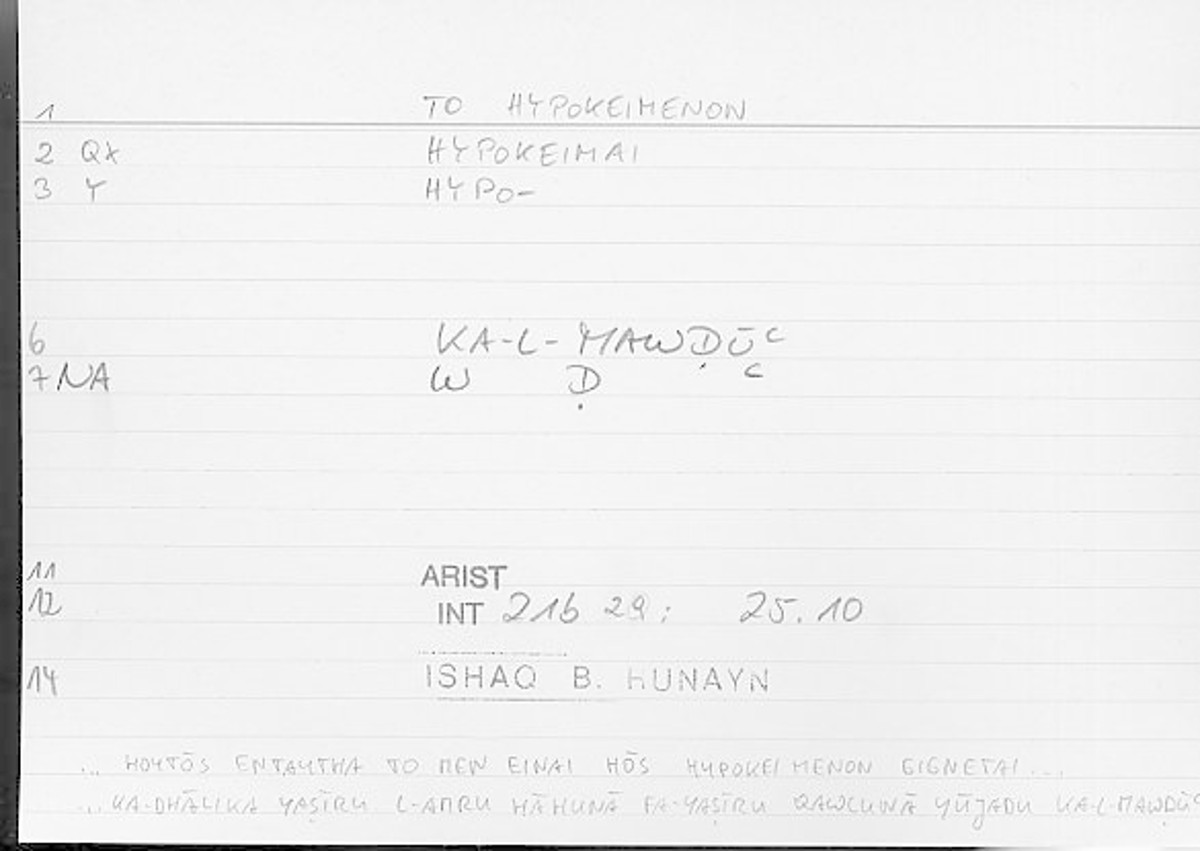 1 TO HYPOKEIMENON
2 QX HYPOKEIMAI
3 Y HYPO-
6 KA-L-MAWḌŪC
7 NA W Ḍ C
11 ARIST
12 INT 21b 29: 25.10
14 ISHAQ B. HUNAYN
... HOYTŌS ENTAYTHA TO MEN EINAI HŌS HYPOKEIMENON GIGNETAI...
... KA-DHĀLIKA YAṢĪRU L-AMRU HĀHUNĀ FA-YAṢĪRU QAWLUNĀ YŪJADU KA-L-MAWḌŪC